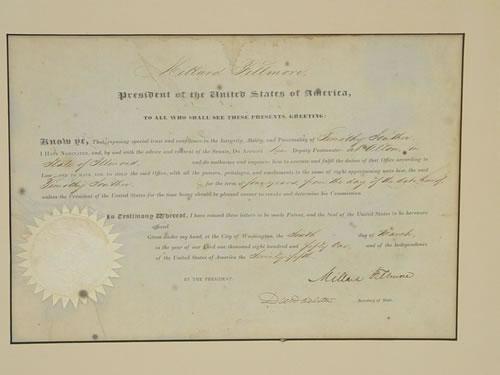 Millard Fillmore,
President of the United States of America,
TO ALL WHO SHALL SEE THESE PRESENTS, GREETING:
Know ye, That, reposing special trust and confidence in the Integrity, Ability, and Punctuality of Timothy Souther
I Have Nominated, and, by and with the advice and consent of the Senate, Do Appoint him Deputy Postmaster at Alton in
State of Illinois, and do authorize and empower him to execute and fulfil the duties of that Office according to
Law; and to have and to hold the said Office, with all the powers, privileges, and emoluments to the same of right appertaining unto him, the said
Timothy Souther for the term of four years from the day of the date hereof
unless the President of the United States for the time being should be pleased sooner to revoke and determine his Commission.
In Testimony Whereof, I have caused these letters to be made Patent, and the Seal of the United States to be hereunto
affixed.
Given under my hand, at the City of Washington, the day of March,
in the year of our Lord one thousand eight hundred and fifty one and of the Independence
of the United States of America the Seventy fifth
BY THE PRESIDENT:
Millard Fillmore
Secretary of State.